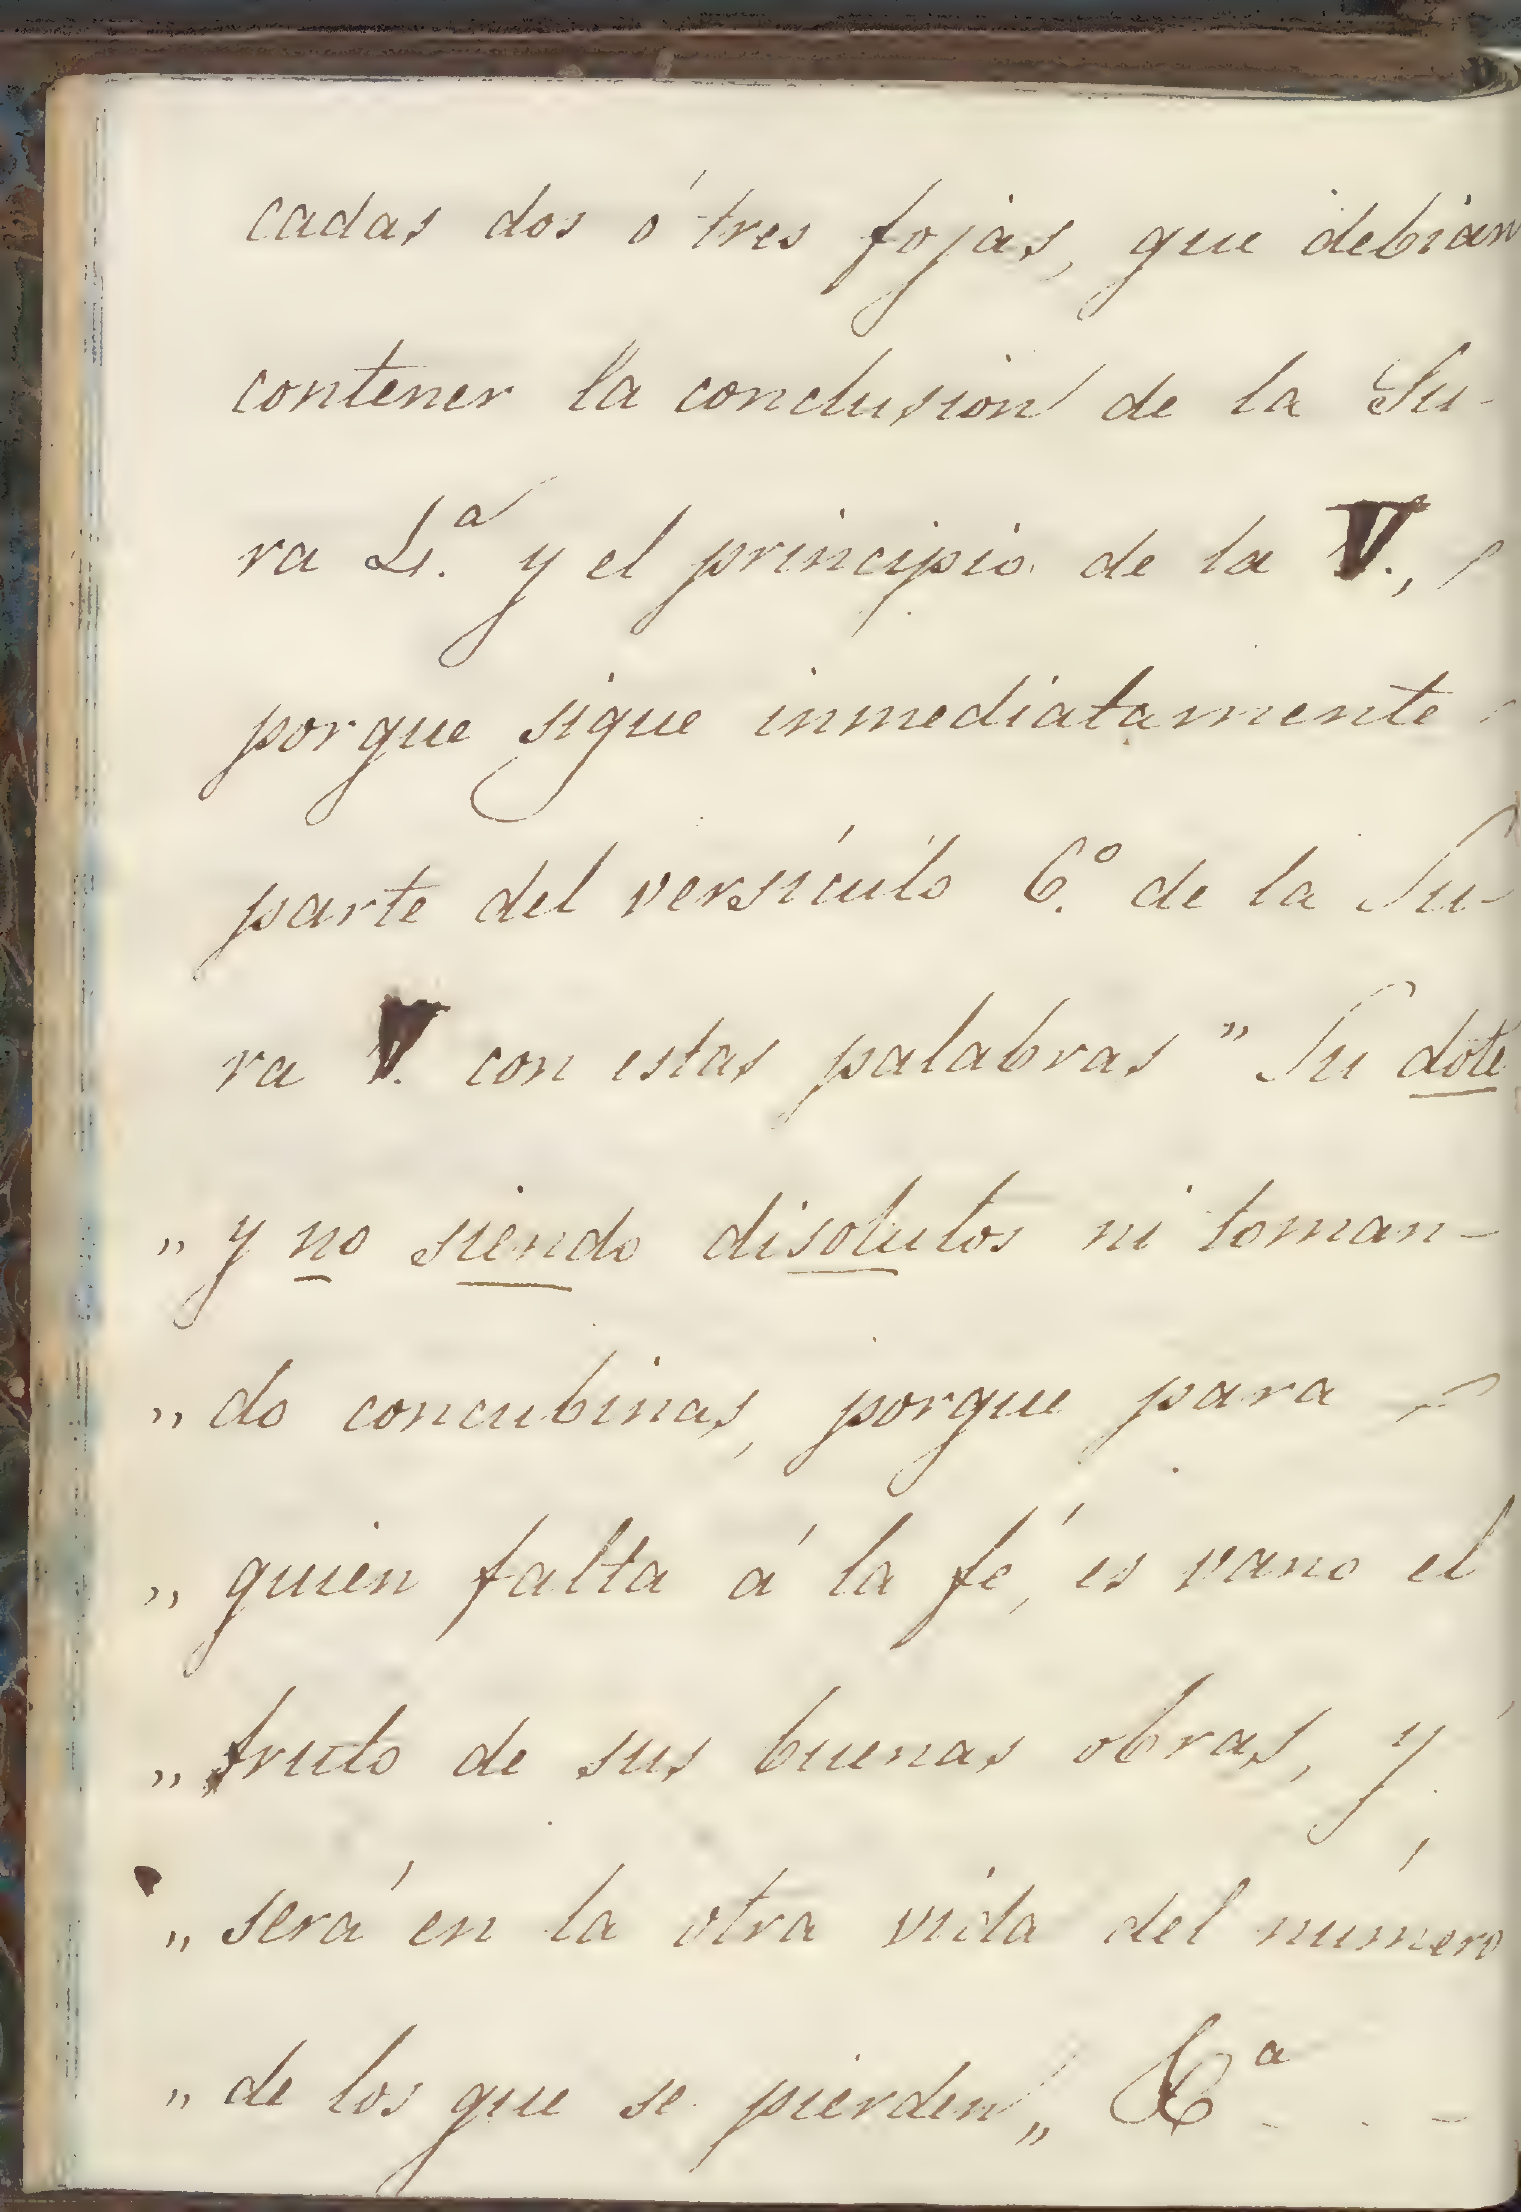 cadas dos ó tres fojas, que debian
contener la conclusion de la Su-
ra 4.ª y el principio de la V.,
porque sigue inmediatamente
parte del versículo 6.º de la Su-
ra V. con estas palabras " Su dote
" y no siendo disolutos ni toman-
" do concubinas, porque para
" quien falta á la fé, es vano el
" fruto de sus buenas obras, y
" será en la otra vida del número
" de los que se pierden" &ª - . -